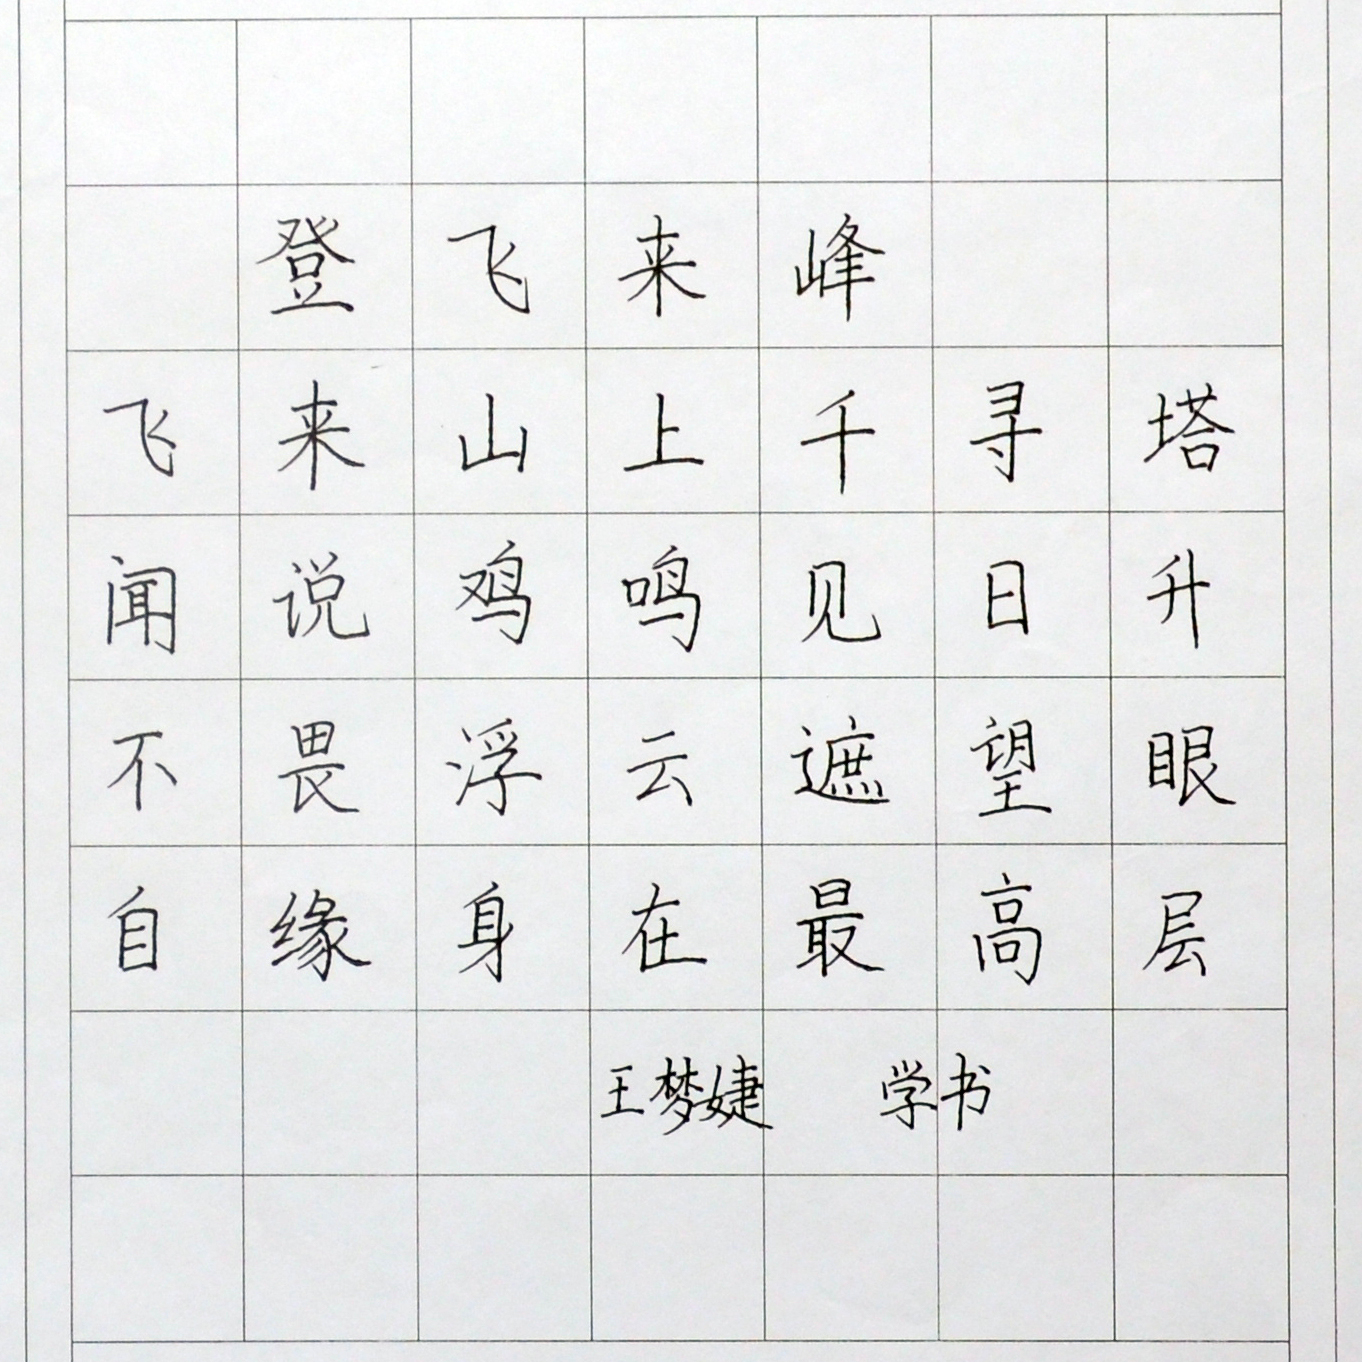 登飞来峰
飞来山上千寻塔
闻说鸡鸣见日升
不畏浮云遮望眼
自缘身在最高层
王梦婕 学书